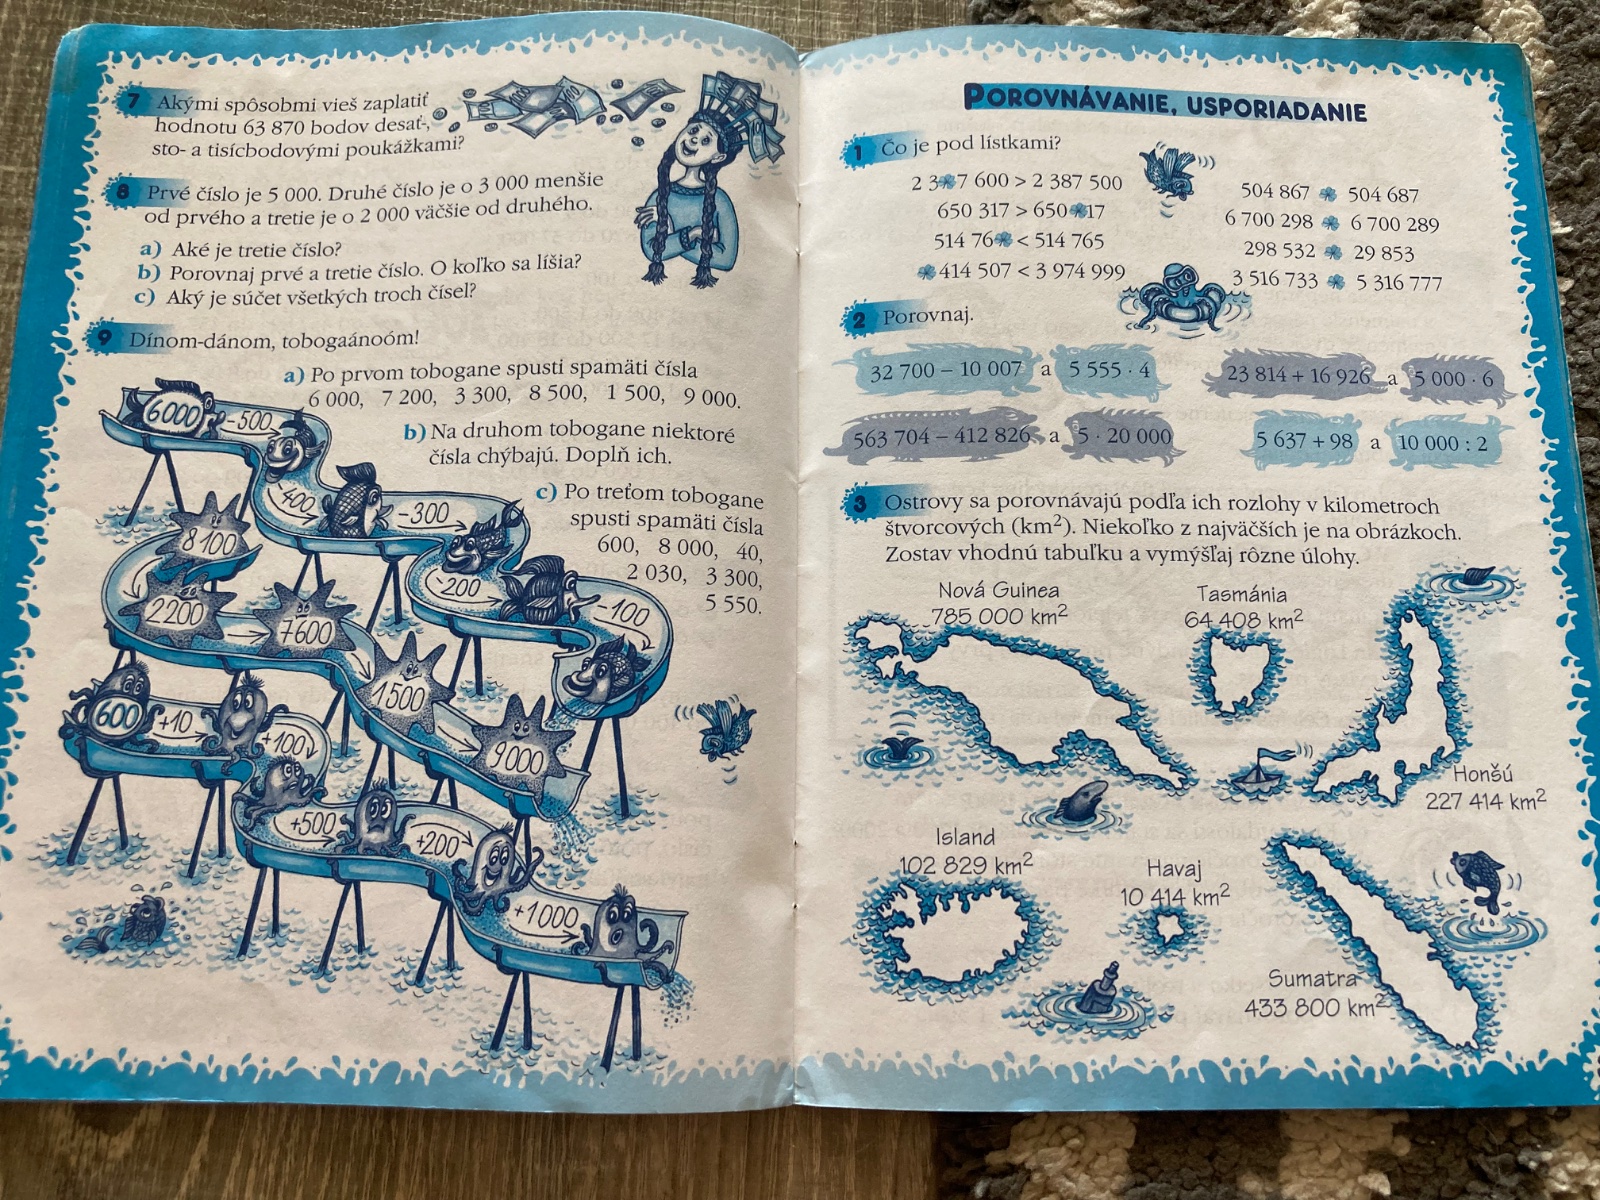 7 Akými spôsobmi vieš zaplatiť
hodnotu 63 870 bodov desať-,
sto- a tisícbodovými poukážkami?
8 Prvé číslo je 5 000. Druhé číslo je o 3 000 menšie
od prvého a tretie je o 2 000 väčšie od druhého.
a) Aké je tretie číslo?
b) Porovnaj prvé a tretie číslo. O koľko sa líšia?
c) Aký je súčet všetkých troch čísel?
9 Dínom-dánom, tobogaánoóm!
a) Po prvom tobogane spusti spamäti čísla
6 000, 7 200, 3 300, 8 500, 1 500, 9 000.
b) Na druhom tobogane niektoré
čísla chýbajú. Doplň ich.
c) Po treťom tobogane
spusti spamäti čísla
600, 8 000, 40,
2 030, 3 300,
5 550.
6000 -500
-400
-300
-200
-100
8 100
2200
7600
1 500
9 000
600 +10
+100
+500
+200
+1 000
POROVNÁVANIE, USPORIADANIE
1 Čo je pod lístkami?
2 3 7 600 > 2 387 500
650 317 > 650 17
514 76 < 514 765
414 507 < 3 974 999
504 867 504 687
6 700 298 6 700 289
298 532 29 853
3 516 733 5 316 777
2 Porovnaj.
32 700 – 10 007 a 5 555 · 4
23 814 + 16 926 a 5 000 · 6
563 704 – 412 826 a 5 · 20 000
5 637 + 98 a 10 000 : 2
3 Ostrovy sa porovnávajú podľa ich rozlohy v kilometroch
štvorcových (km²). Niekoľko z najväčších je na obrázkoch.
Zostav vhodnú tabuľku a vymýšľaj rôzne úlohy.
Nová Guinea
785 000 km²
Tasmánia
64 408 km²
Honšú
227 414 km²
Island
102 829 km²
Havaj
10 414 km²
Sumatra
433 800 km²